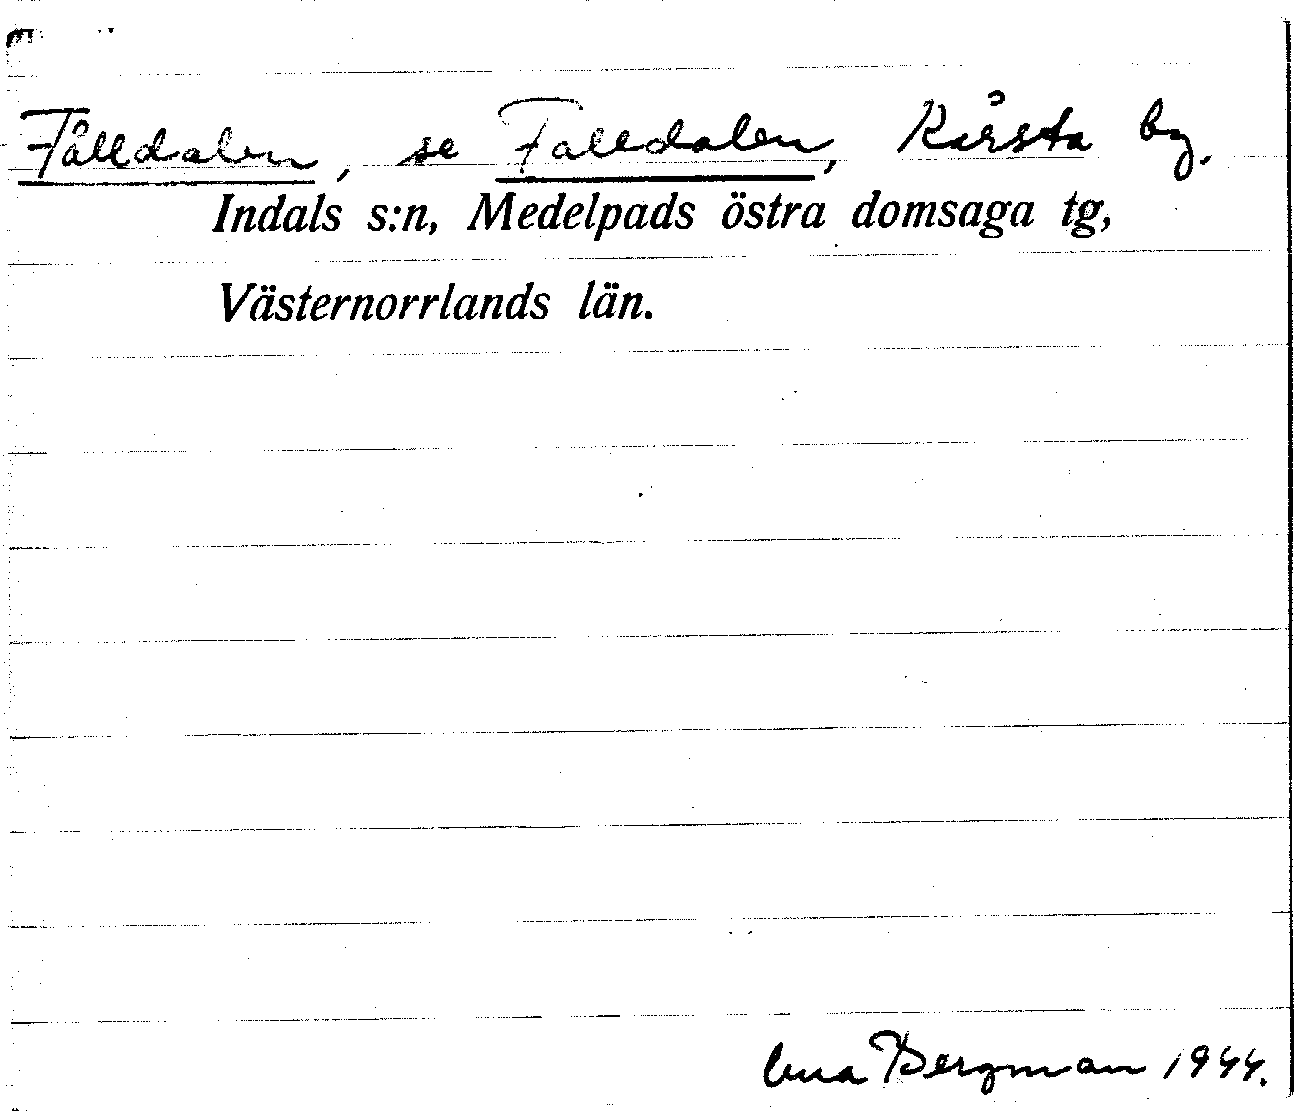 Fålldalen, se Falldalen, Kårsta by.
Indals s:n, Medelpads östra domsaga tg,
Västernorrlands län.
Bergman 1944.